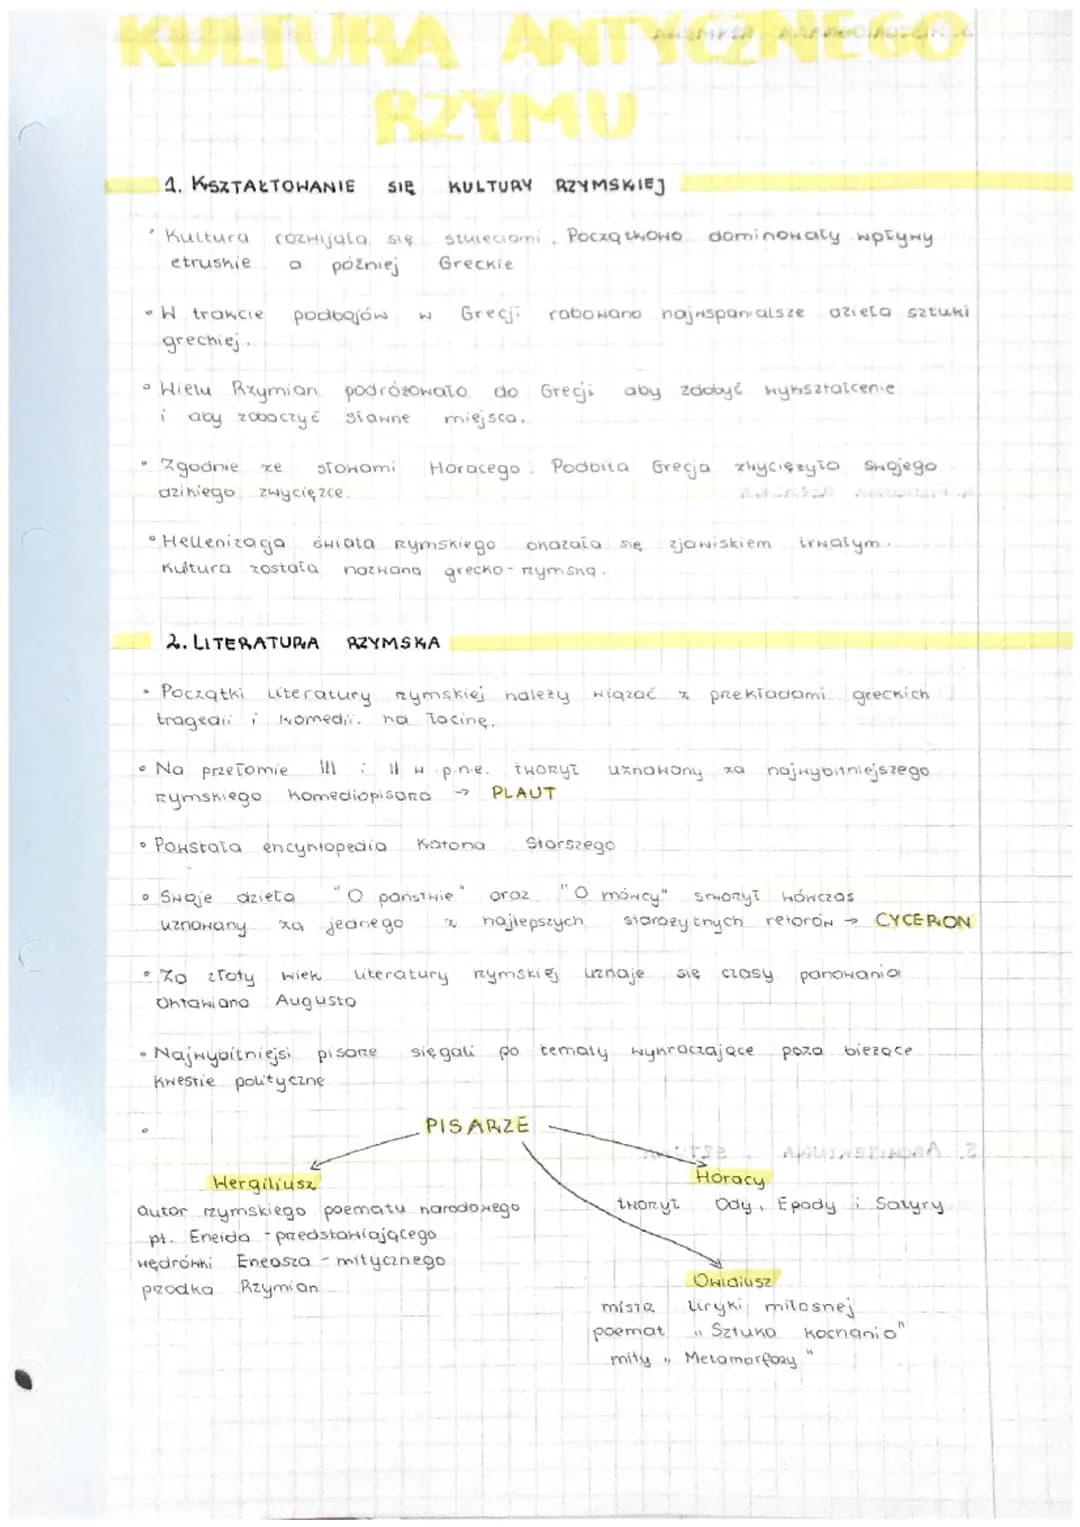 KULTURA ANTYCZNEGO
RZYMU
1. KSZTAŁTOWANIE SIĘ KULTURY RZYMSKIEJ
• Kultura rozwijała się stuleciami. Początkowo dominowały wpływy
etruskie a później Greckie
• W trakcie podbojów w Grecji rabowano najwspanialsze dzieła sztuki
greckiej.
• Wielu Rzymian podróżowało do Grecji aby zdobyć wykształcenie
i aby zobaczyć sławne miejsca.
• Zgodnie ze słowami Horacego. Podbita Grecja zwyciężyło swojego
dzikiego zwycięzce.
• Hellenizacja świata rzymskiego okazała się zjawiskiem trwałym.
Kultura została nazwana grecko-rzymską.
2. LITERATURA RZYMSKA
• Początki literatury rzymskiej należy wiązać z przekładami greckich
tragedii i komedii. na łacinę.
• Na przełomie III i II w p.n.e. tworzył uznawany za najwybitniejszego
rzymskiego komediopisarza → PLAUT
• Powstała encyklopedia Katona Starszego
• Swoje dzieła "O państwie" oraz "O mówcy" stworzył wówczas
uznawany za jednego z najlepszych starożytnych retorów → CYCERON
• Za złoty wiek literatury rzymskiej uznaje się czasy panowania
Oktawiana Augusta
• Najwybitniejsi pisarze sięgali po tematy wykraczające poza bieżące
kwestie polityczne
• PISARZE
Wergiliusz
autor rzymskiego poematu narodowego
pt. Eneida - przedstawiającego
wędrówki Eneasza - mitycznego
przodka Rzymian
Horacy
tworzył Ody, Epody i Satyry
Owidiusz
mistrz liryki miłosnej
poemat „Sztuka kochania"
mity „Metamorfozy"